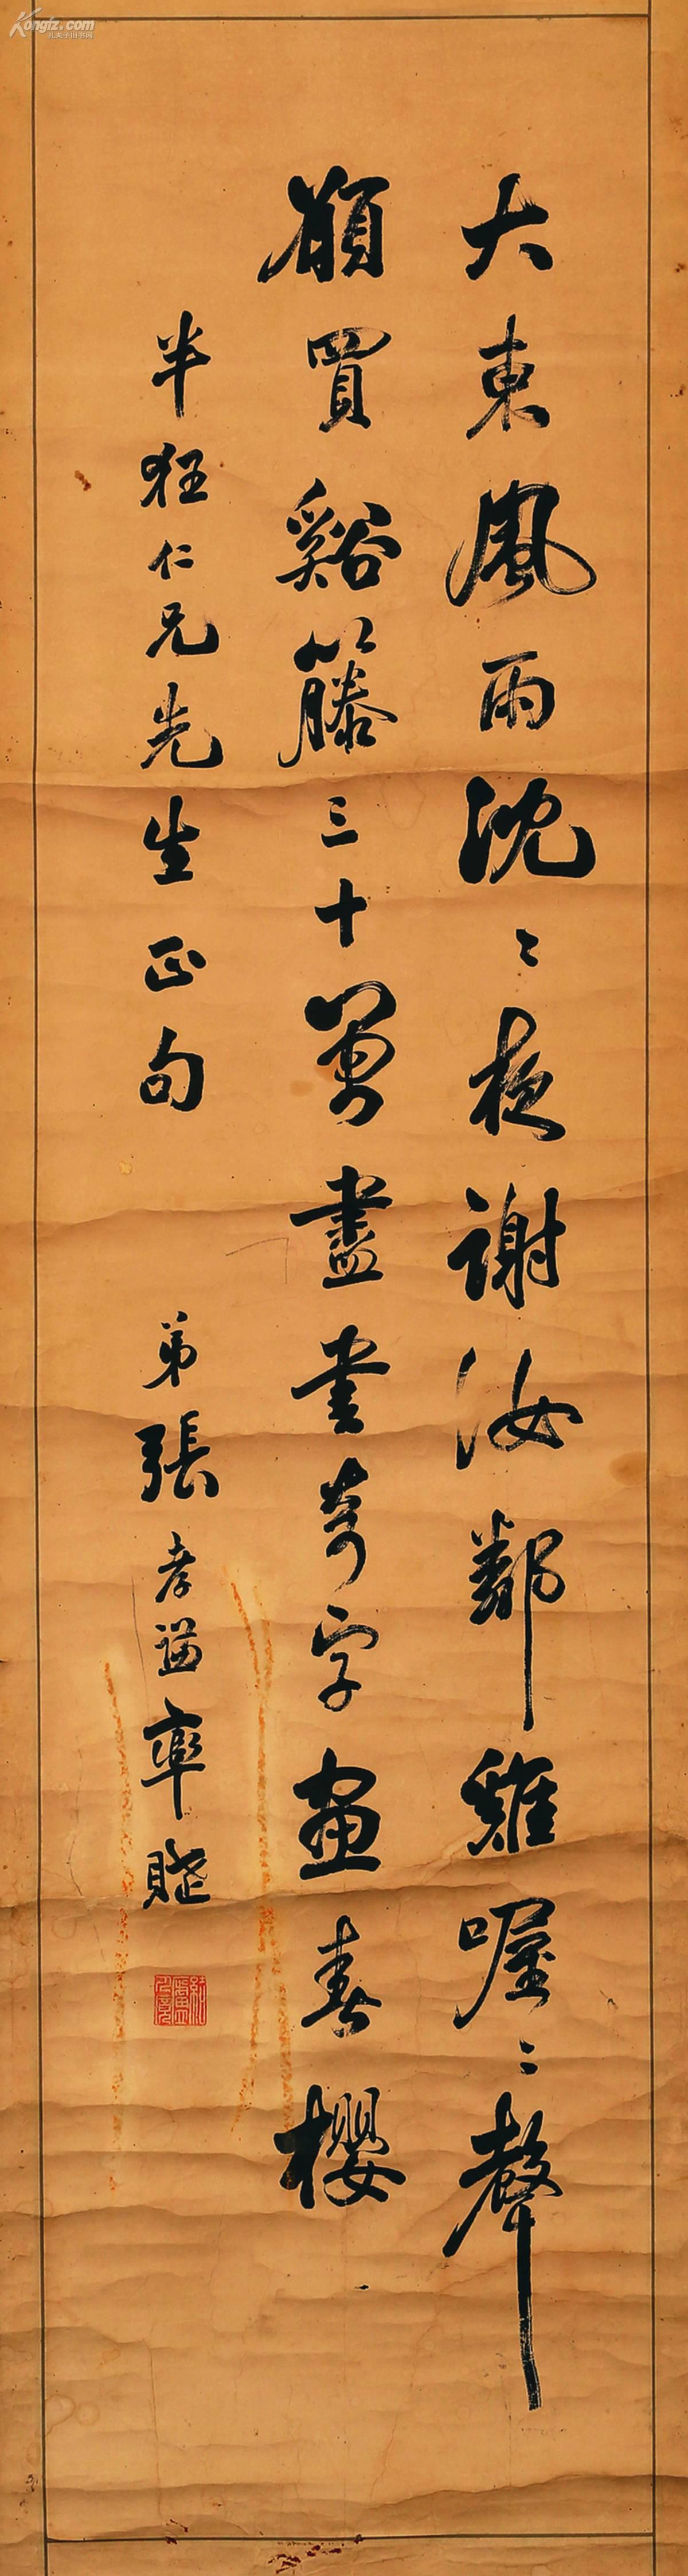 大東風雨沈〻夜謝汝鄰雞喔〻聲
願買谿籐三十萬盡書奇字畫春櫻
半狂仁兄先生正句
弟張孝謌率贈
Kongfz.com
孔夫子旧书网